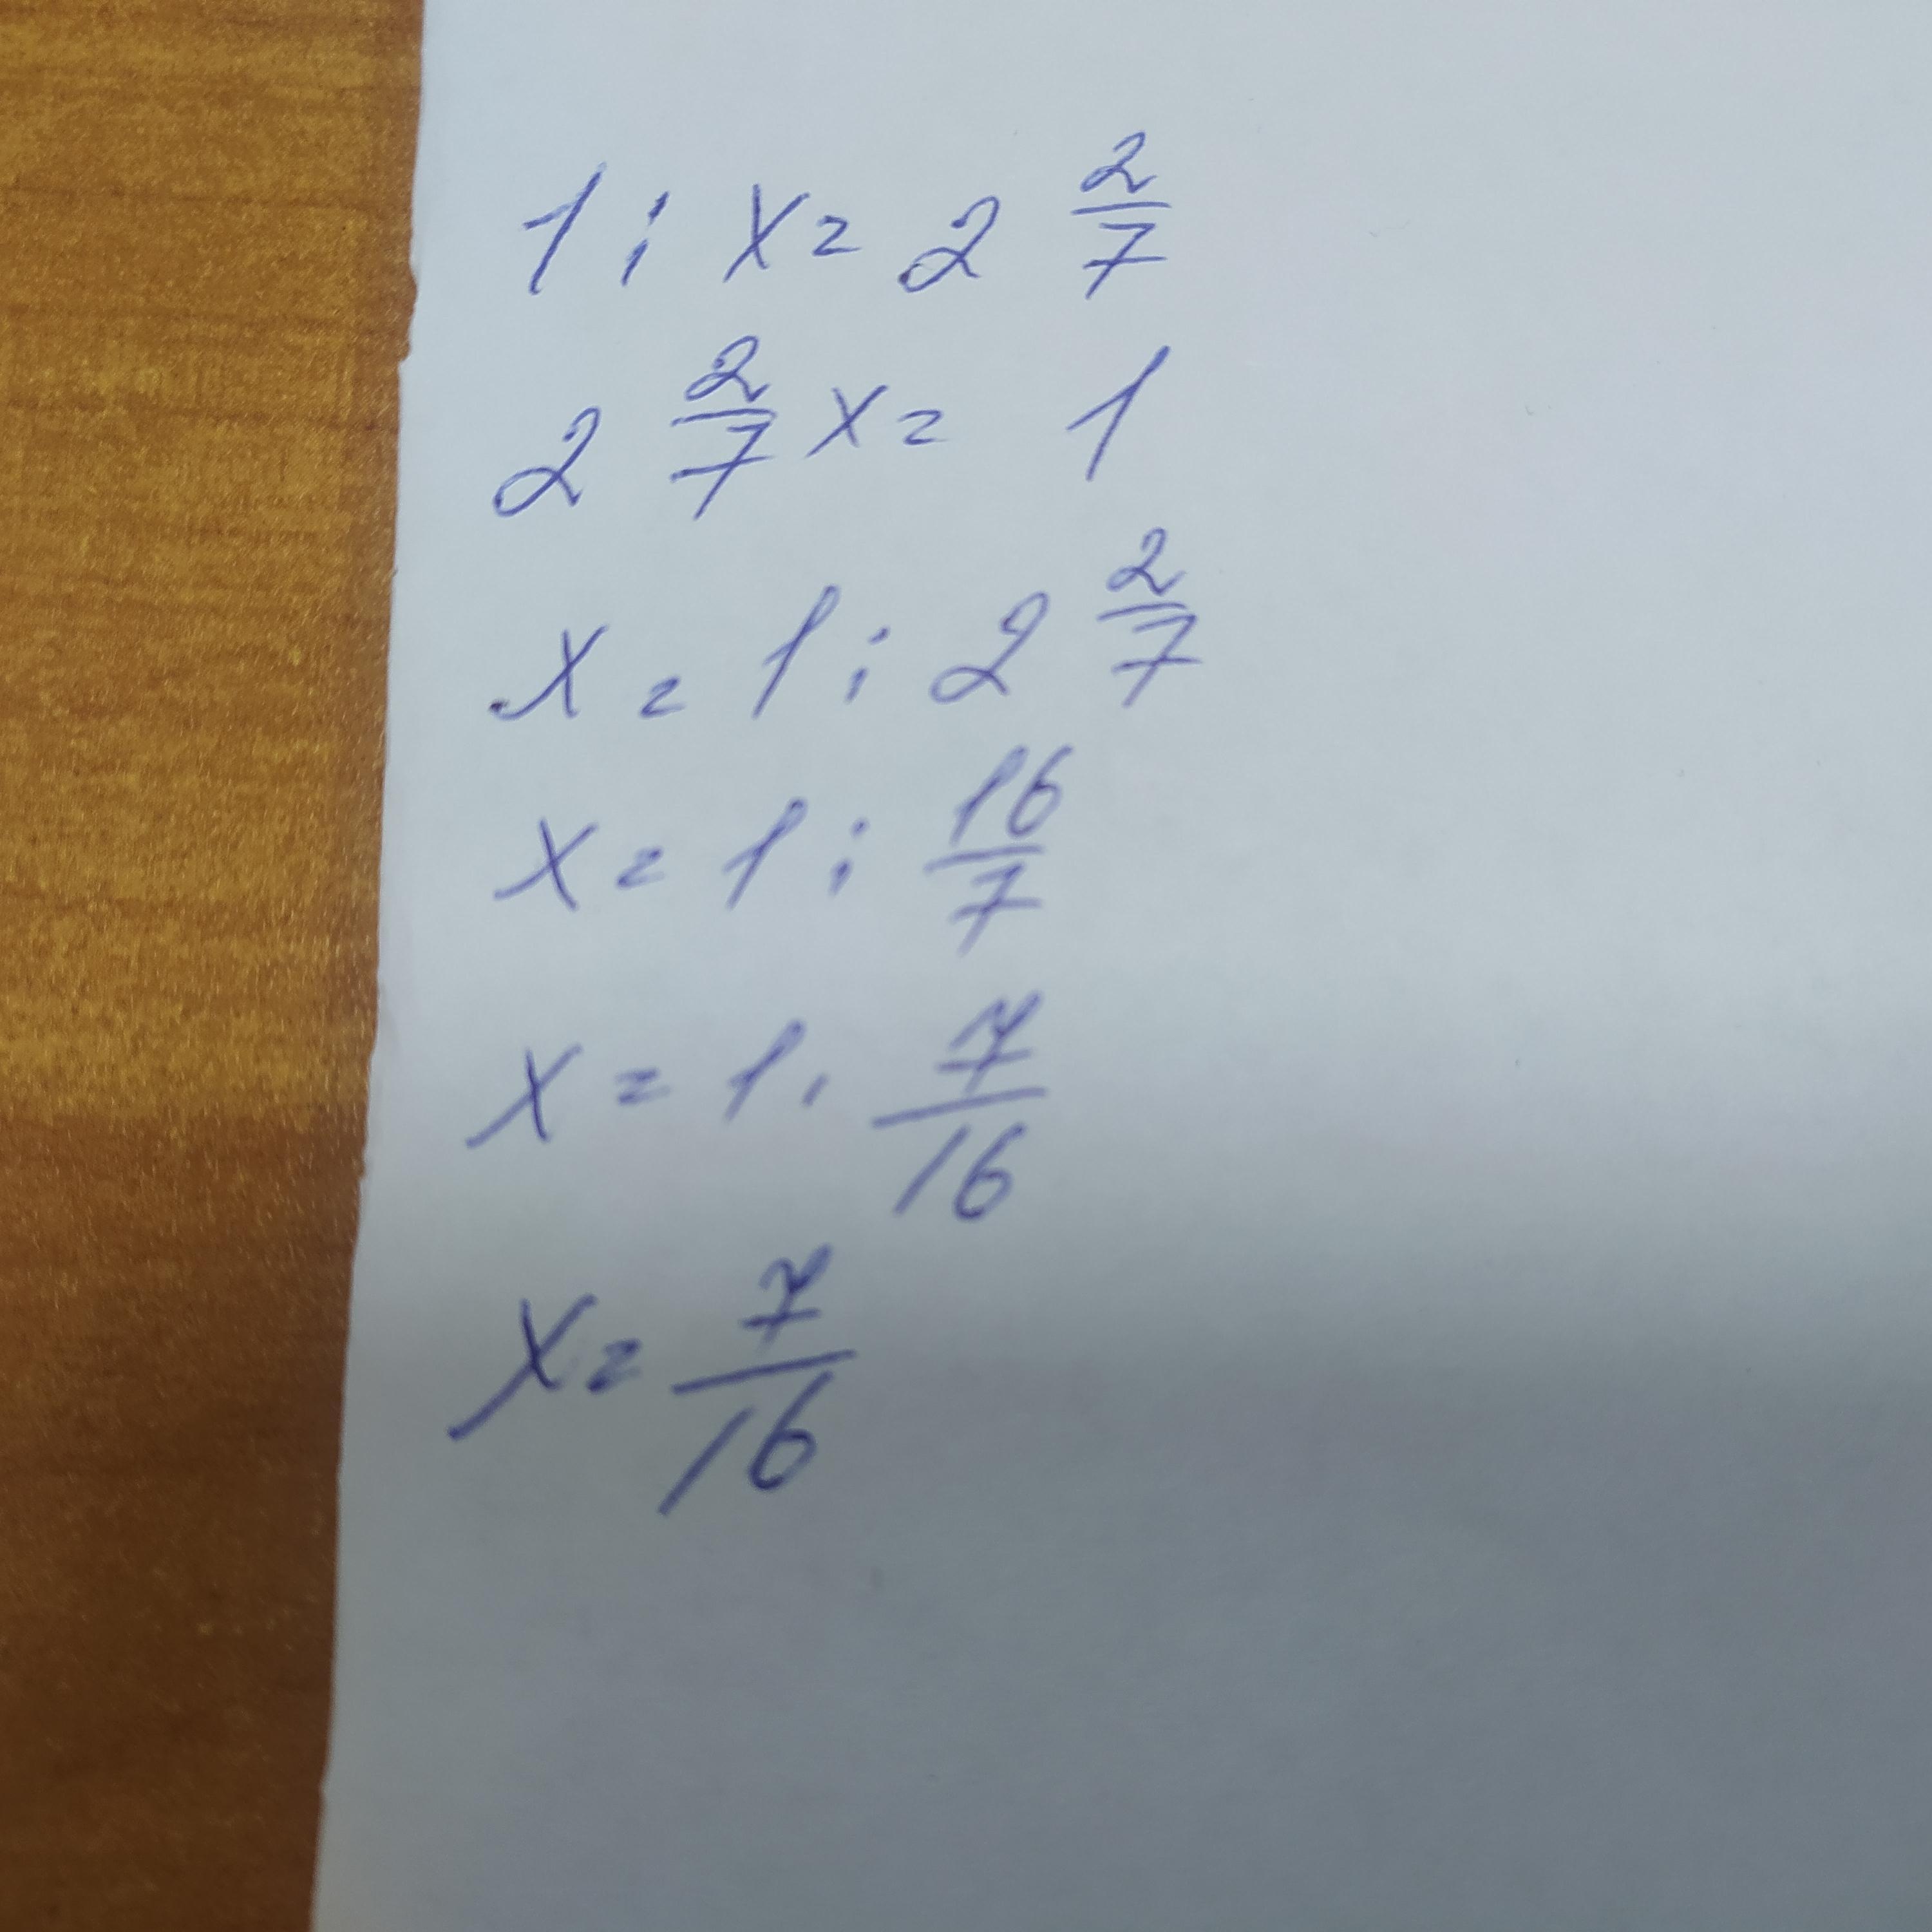 1 : x = 2 2/7
2 2/7 x = 1
x = 1 : 2 2/7
x = 1 : 16/7
x = 1 · 7/16
x = 7/16